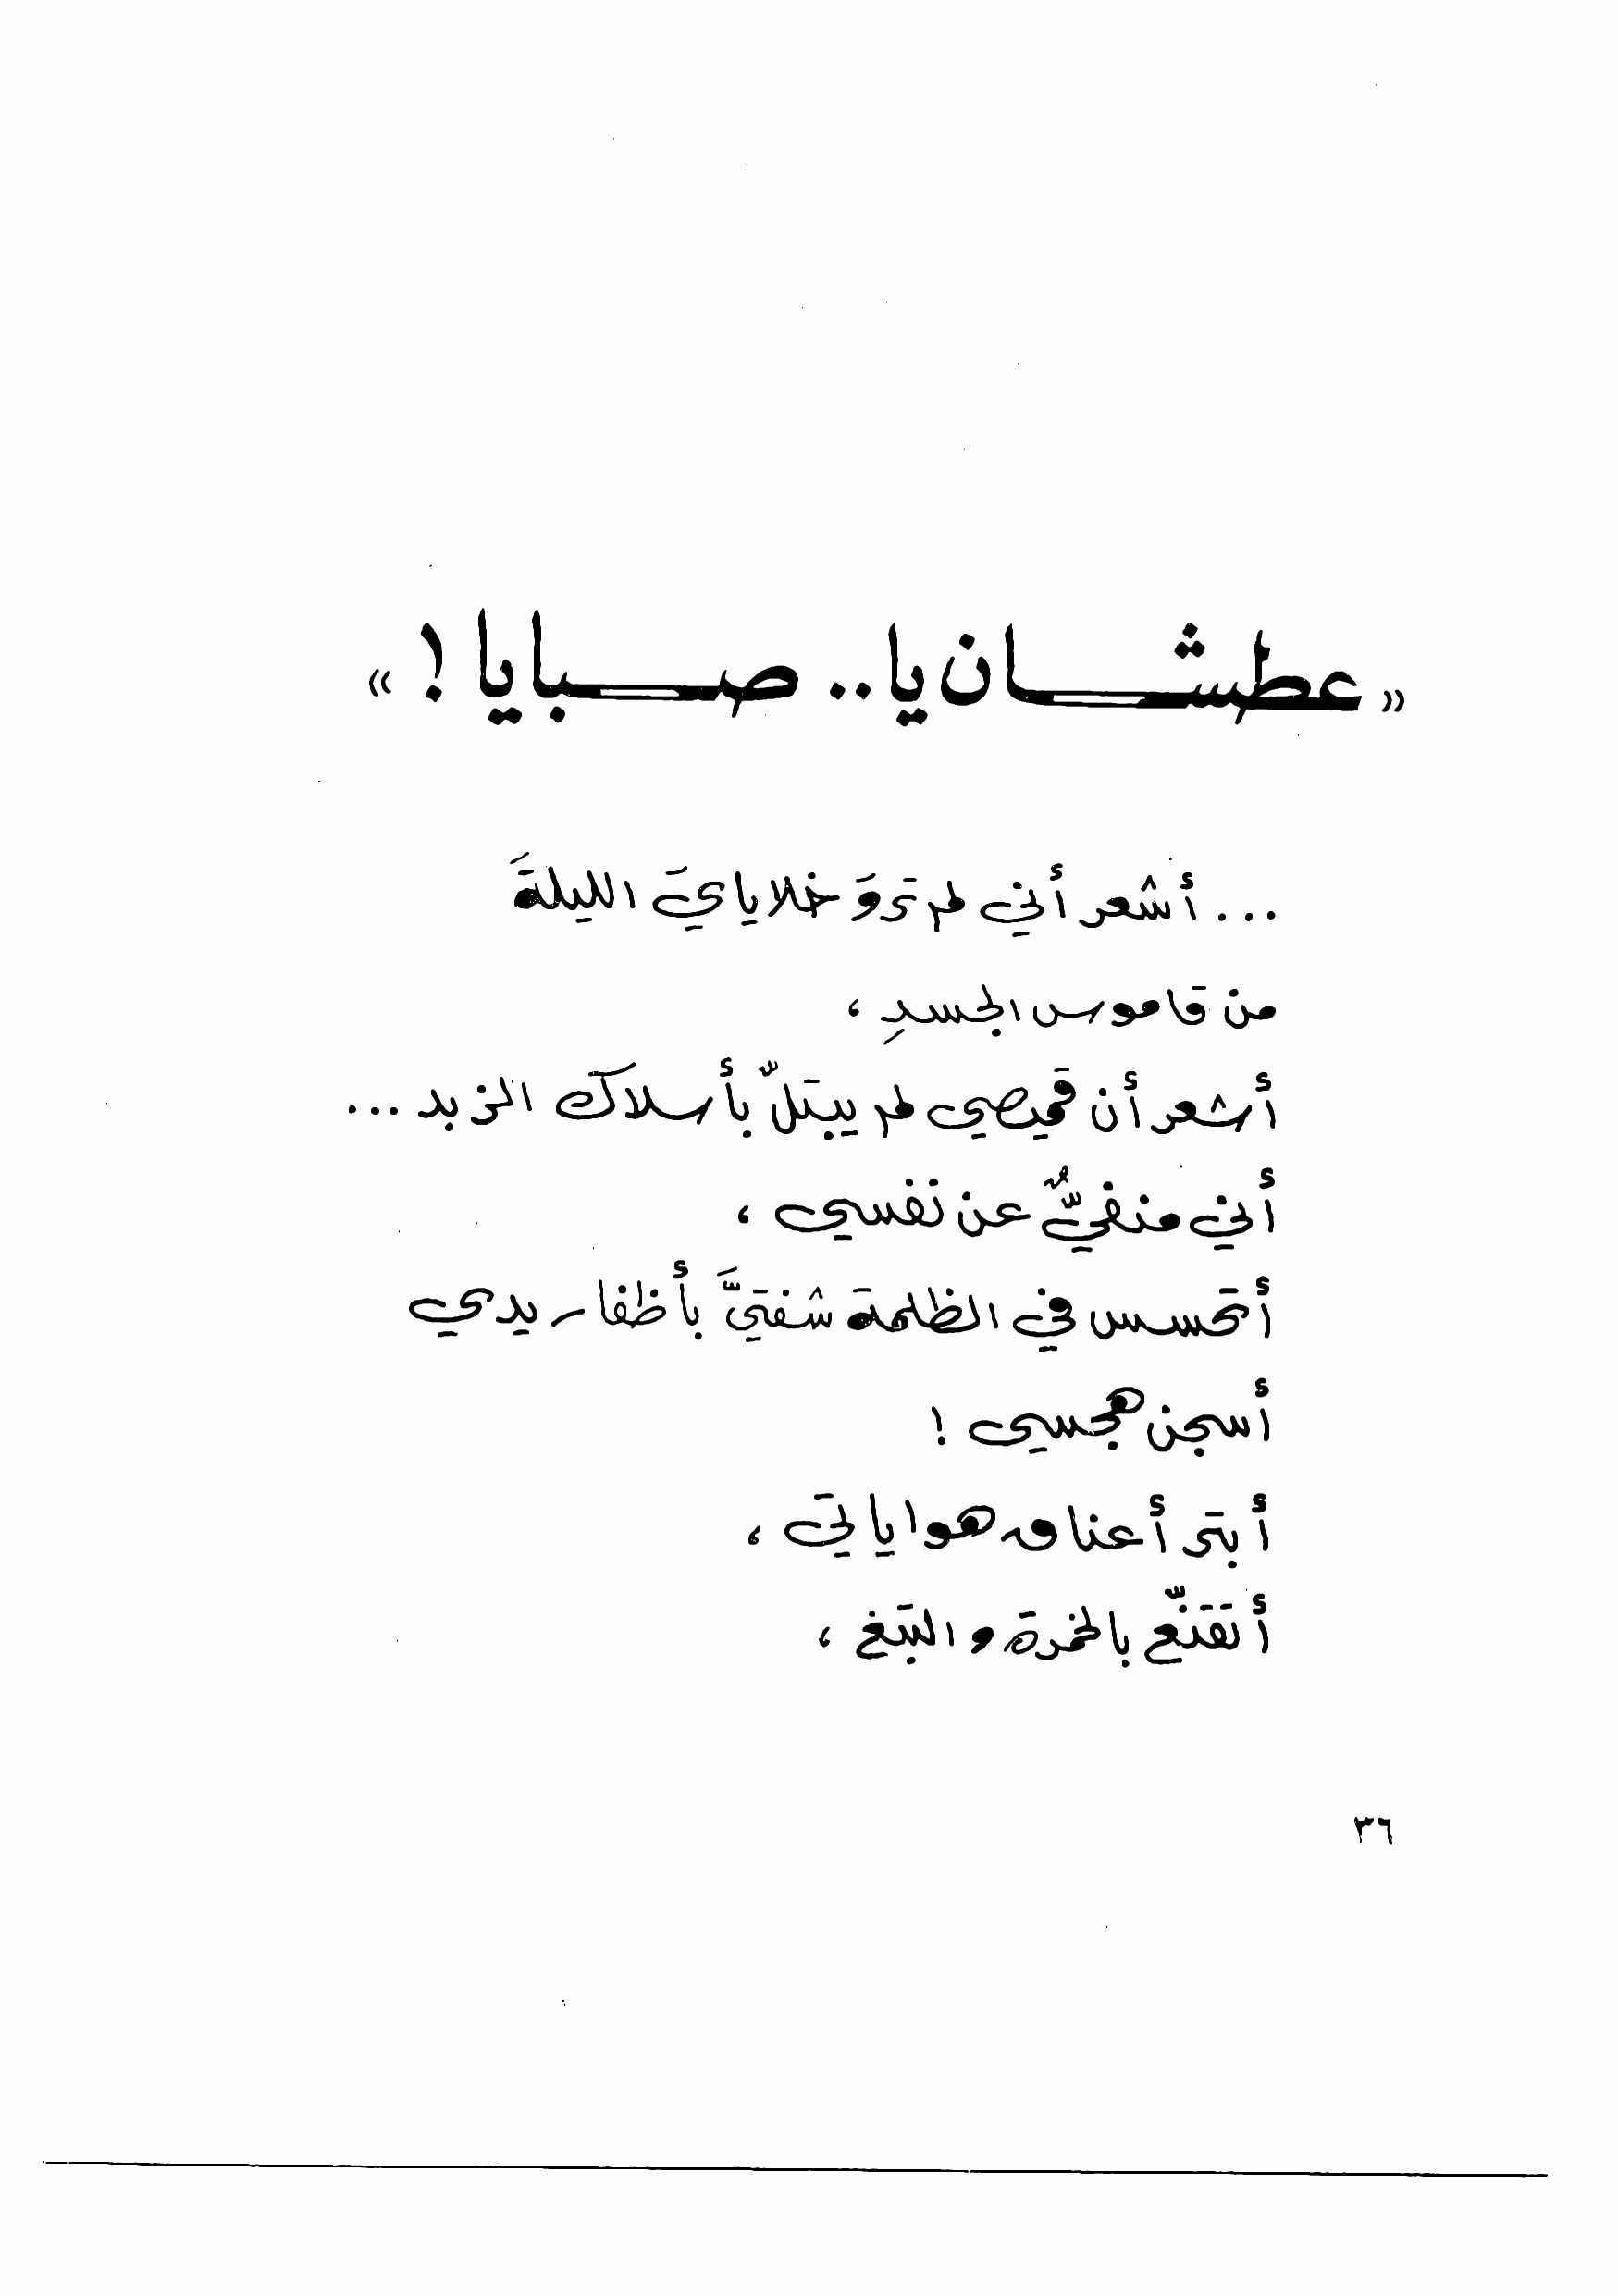 «عطشان يا.. صبايا!»
... أشعر أني لم تروَ خلايايَ الليلةَ
من قاموس الجسدِ ،
أشعر أن قميصي لم يبتلّ بأسلاك الزبد ...
أني منفيٌّ عن نفسي ،
أتحسس في الظلمة شفتيَّ بأظفار يدي
أسجن هجسي !
أبتر أعناق هواياتي ،
أتقنّع بالخمرة والتبغ ،
٣٦